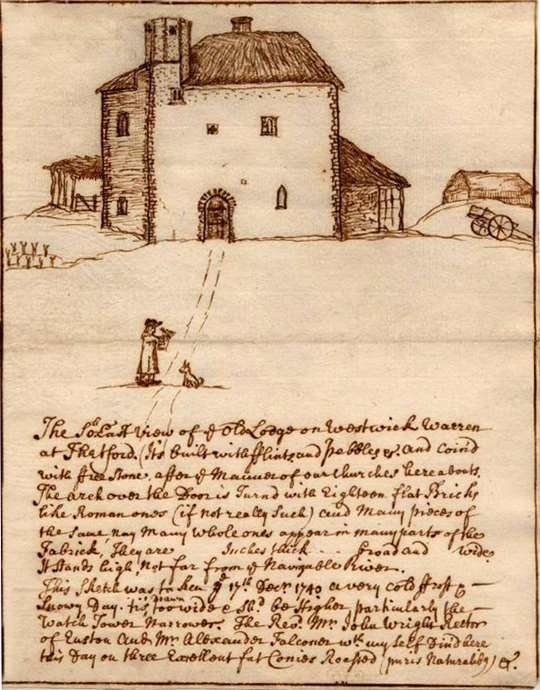 The So: East View of ye Old Lodge on Westwick Warren
at Thetford. (Its built with fflints and pebbles &. And Coind
with free Stone, after ye Manner of our Churches hereabouts.
The arch over the Door is Turnd with Eighteen flat Bricks
like Roman ones (if not really Such) and Many pieces of
the Same nay Many whole ones appear in many parts of the
Fabrick, They are Inches thick Broad and wide.
It Stands high, Not far from ye Navigable River.
This Sketch was taken ye 17th. Decr. 1740 a very cold frost &
Snowy Day. tis drawn too wide & Shd. be Higher, particularly the
Watch Tower Narrower. The Revd. Mr. John Wright Rector
of Euston And Mr. Alexander Falconer wth. my Self Din'd here
this Day on three Excellent fat Conies Roasted (puris Naturalibus) &c.